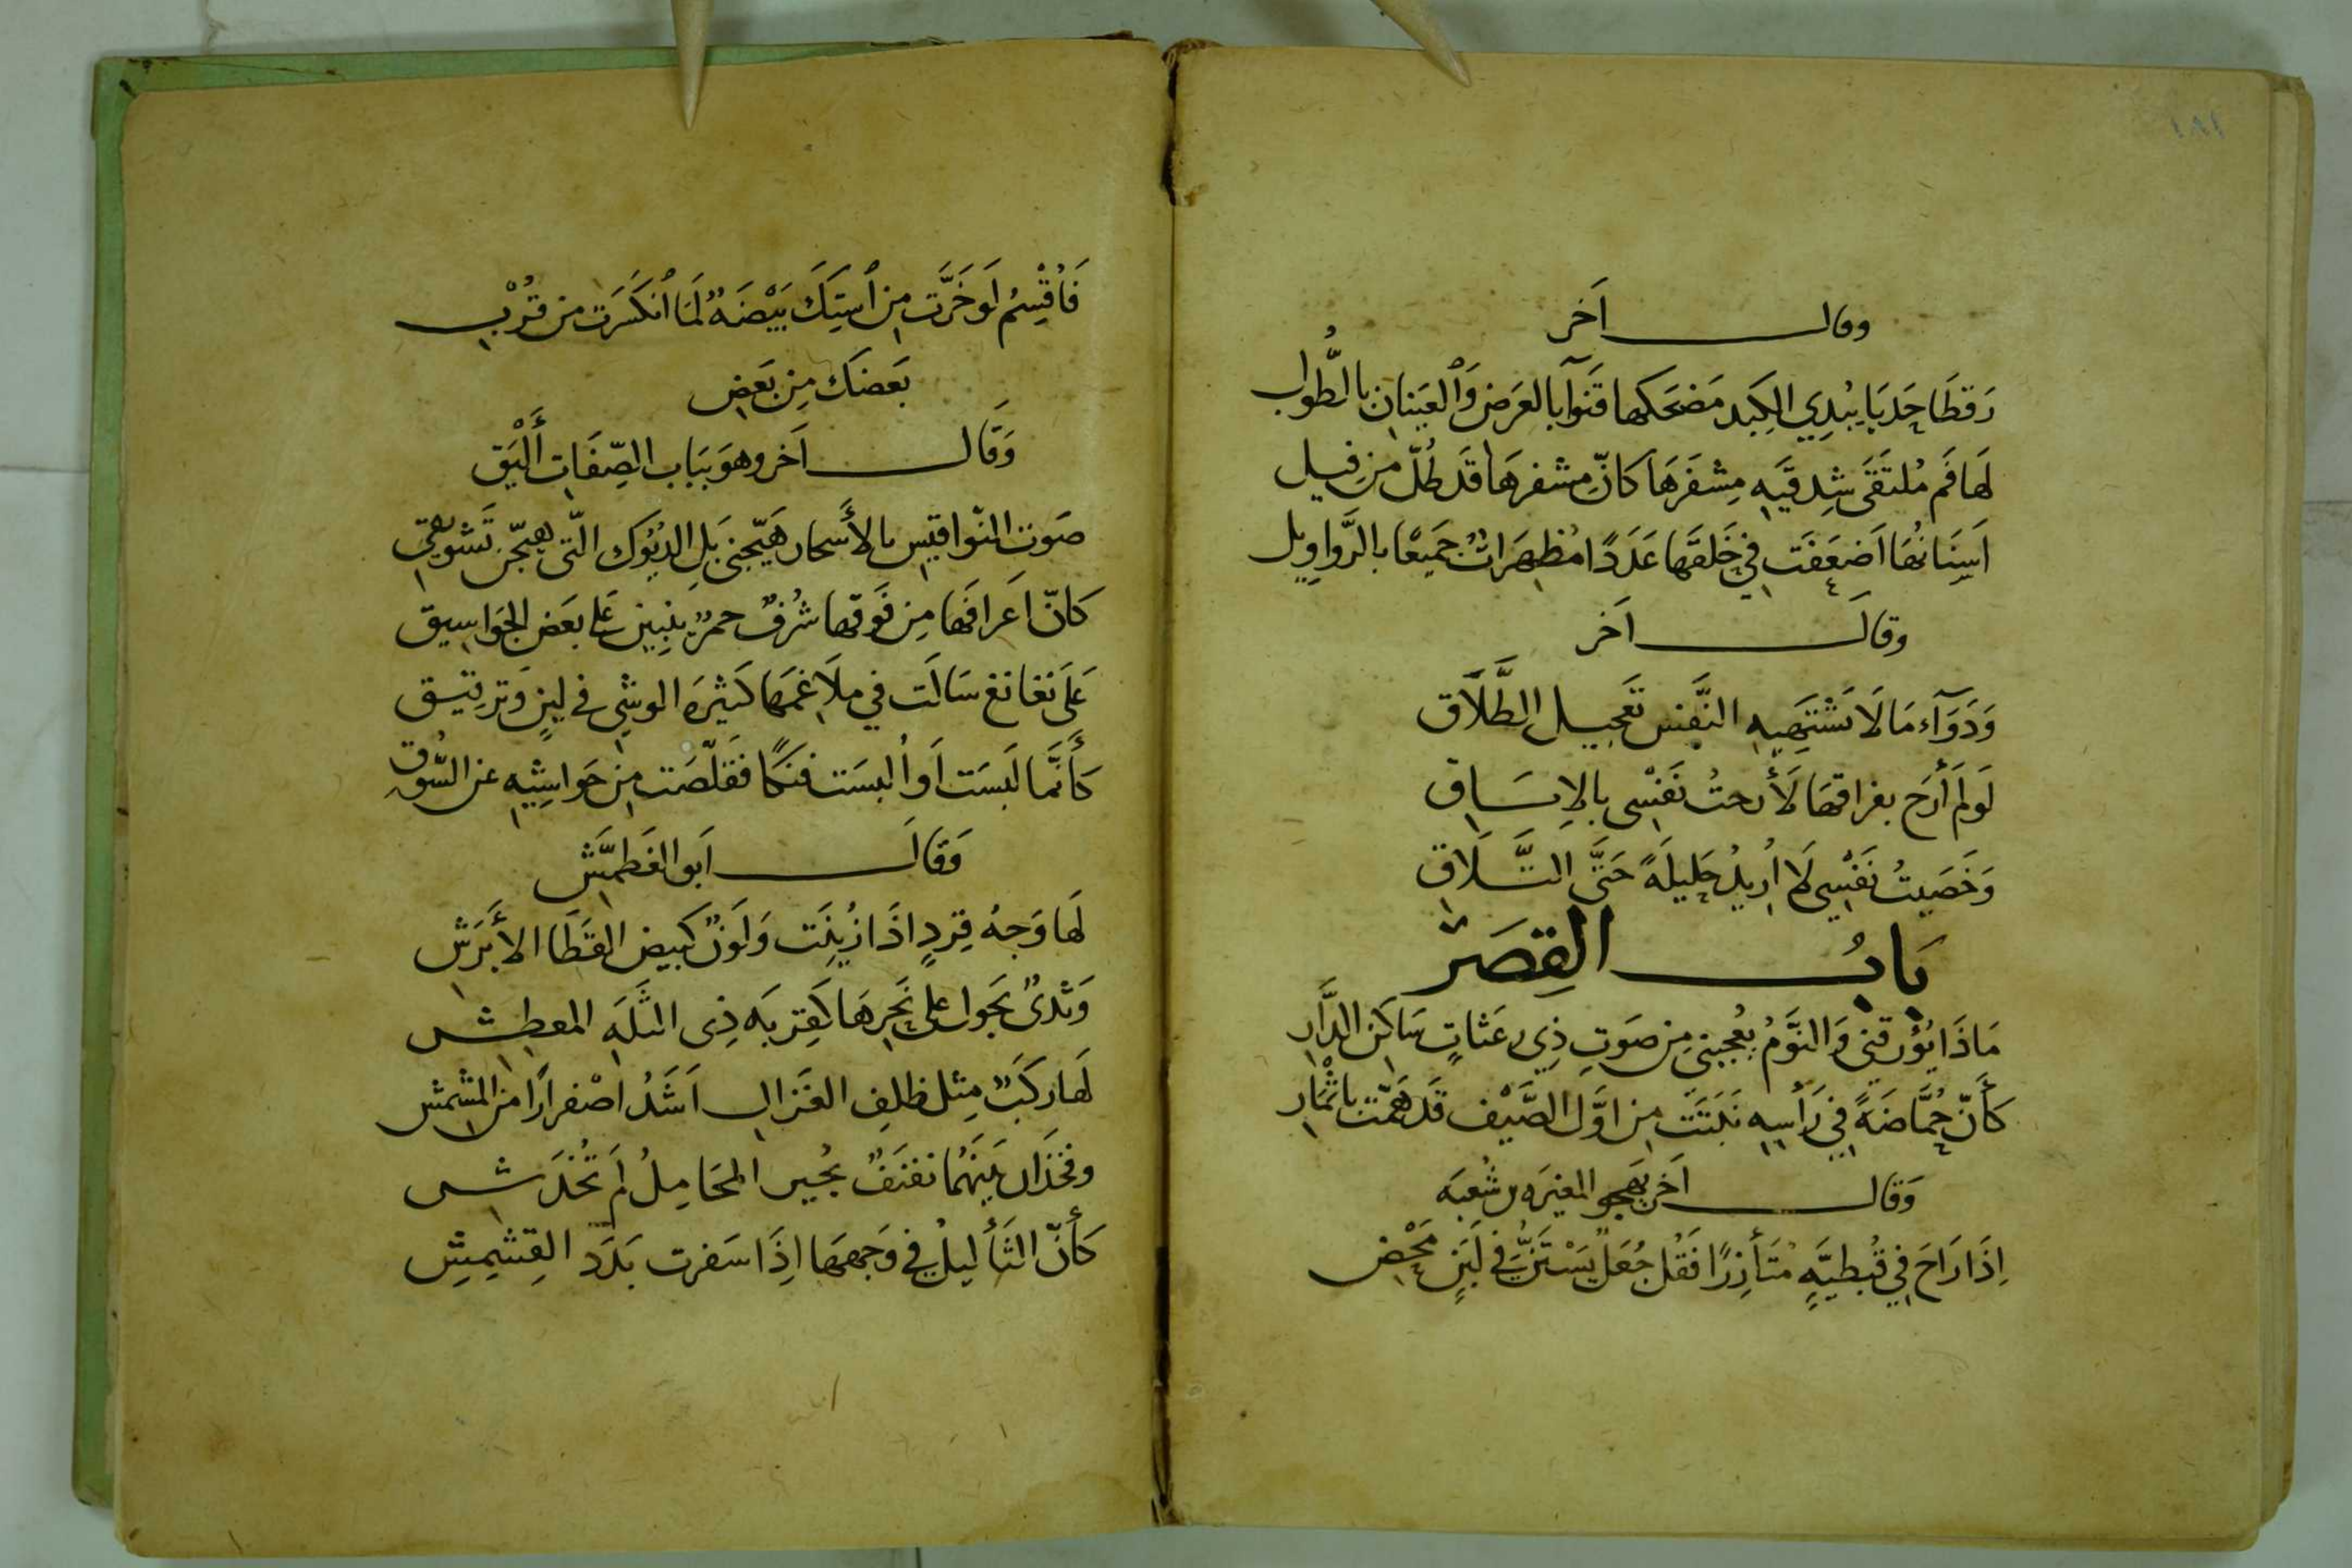 ١٨٢
وقال آخر
رَقطَا حَدبَا يُبدِي الكِبَد مَضحَكها قَنوَآ بالعَرضِ وَالعَينانِ بالطُّولِ
لَهَا فَم مُلتَقَى شِدقَيهِ مِشفَرَهَا كَانّ مِشفرهَا قَد طُلّ مِن فِيلِ
اَسنَانُهَا اَضعَفَت فِي خَلقهَا عَدَدًا مُظهَرَاتٌ جَميعًا بالرَّواوِيلِ
وقالَ اَخر
وَدَوَآء مَا لَا تَشْتَهِيهِ النَّفس تَعجِيل الطَّلَاقِ
لَو لَم أُرَح بفراقهَا لَأَرحتُ نَفسِى بالإِبَاقِ
وَخَصَيتُ نَفسِي لَا اُرِيدُ حَلِيلَةً حَتَّى التَّلَاقِ
بَابُ القِصَر
مَاذَا يُؤَرقني وَالنَّومُ يُعجبني مِن صَوتِ ذِي رعَثاتٍ سَاكن الدَّارِ
كَأَنّ حُمَّاضَةً فِي رَأسِهِ نَبَتَت مِن اوَّل الصَّيْف قَد هَمّت باثْمَارِ
وَقال آخر يهجو المغيرة بن شُعبَة
اِذَا رَاحَ فِي قُبطِيَّةٍ مُتَأزِرًا فَقُل جُعَلٌ يَسْتَنُّ في لَبَنٍ مَحْضِ
فَأُقْسِمُ لَو خَرَّت مِن اُستِكَ بَيْضَةٌ لَمَا انكَسَرَت من قُرْبِ
بَعضكَ مِن بَعضِ
وَقَال آخر وهوَ ببَاب الصِّفَات أَلْيَق
صَوت النّواقيسِ بالأَسحار هَيّجني بَلِ الديُوك التّى هيّجن تَشويقي
كَانّ اَعرافَها مِن فَوقها شُرُفٌ حمرٌ بنِينَ عَلى بعَضِ الجوَاسِيق
عَلَى نغانغ سَالَت في ملَاغمهَا كَثيرَة الوشيِ في لِينٍ وَترقيق
كَأَنَّمَا لَبسَت اَو اُلبسَت فنكًا فقَلّصَت مِن حَواشِيهِ عن السُّوقِ
وَقَالَ اَبو الغَطمَّش
لَهَا وَجهُ قِردٍ اذَا ازيّنَت وَلَونٌ كبيض القَطَا الأَبرَشِ
وَثدىٌ يَجول على نَحرِهَا كَقِربَة ذِى الثَلّة المعطِش
لَهَا رَكَبٌ مِثل ظلِفِ الغَزالِ اَشَدُّ اصْفرارًا من المشمش
وفخذَان بَينَهُما نفنَفٌ يُجيز المحَامِلُ لَم تُخدَش
كَأَنّ الثَأَليلُ في وَجههَا اِذَا سَفرت بَدَد القِشمِشِ